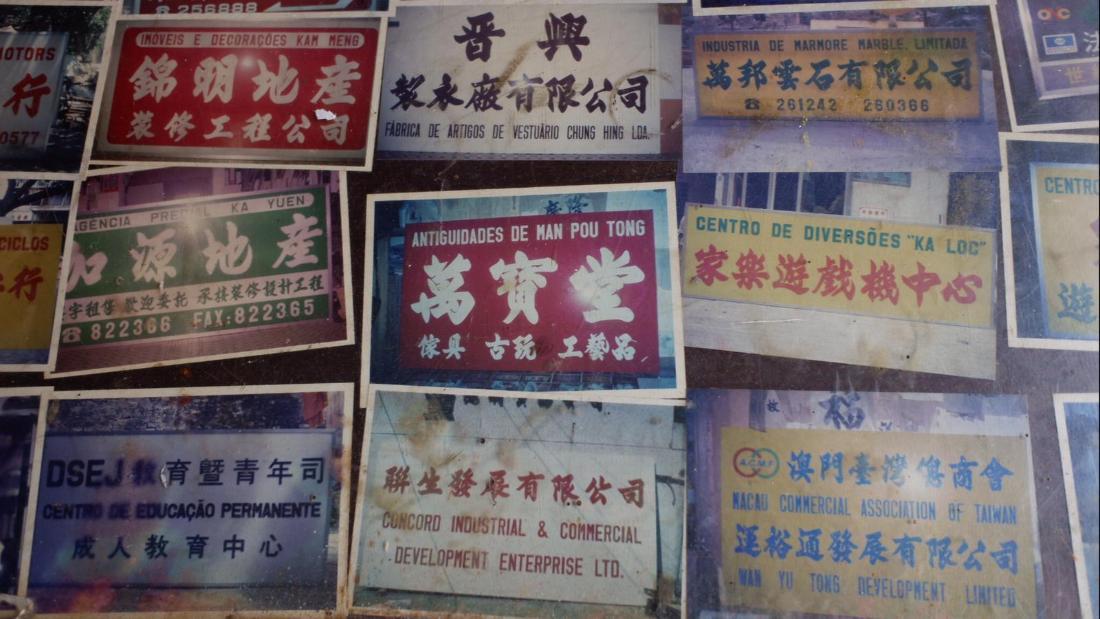 256888
MOTORS
行
0577
IMÓVEIS E DECORAÇÕES KAM MENG
錦明地産
裝修工程公司
晉興
製衣廠有限公司
FÁBRICA DE ARTIGOS DE VESTUÁRIO CHUNG HING LDA.
INDUSTRIA DE MARMORE MARBLE, LIMITADA
萬邦雲石有限公司
☎ 261242 260366
CICLOS
行
AGÊNCIA PREDIAL KA YUEN
加源地産
字租售 歡迎委托 承接裝修設計工程
☎ 822366 FAX:822365
ANTIGUIDADES DE MAN POU TONG
萬寳堂
傢具 古玩 工藝品
CENTRO DE DIVERSÕES "KA LOC"
家樂遊戲機中心
CENTRO
遊
DSEJ 教育暨青年司
CENTRO DE EDUCAÇÃO PERMANENTE
成人教育中心
聯生發展有限公司
CONCORD INDUSTRIAL & COMMERCIAL
DEVELOPMENT ENTERPRISE LTD.
福
A.C.M.T
澳門臺灣總商會
MACAU COMMERCIAL ASSOCIATION OF TAIWAN
運裕通發展有限公司
WAN YU TONG DEVELOPMENT LIMITED